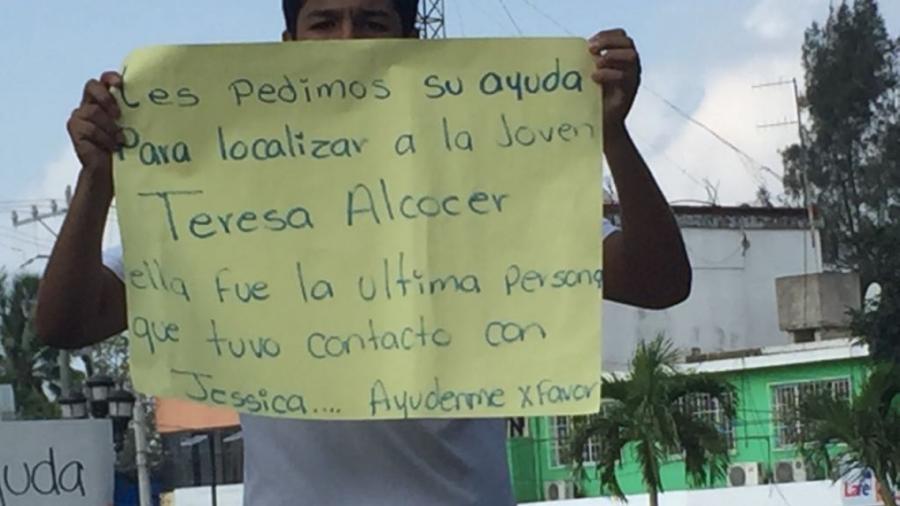 Les Pedimos su ayuda
Para localizar a la Joven
Teresa Alcocer
ella fue la ultima Persona
que tuvo contacto con
Jessica.... Ayudenme x Favor
yuda